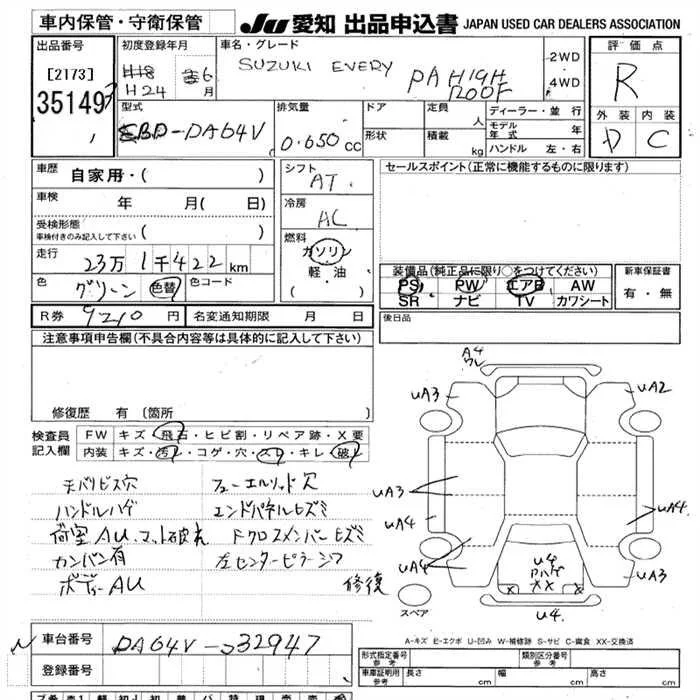 車内保管・守衛保管
JU 愛知 出品申込書 JAPAN USED CAR DEALERS ASSOCIATION
出品番号
[2173]
35149
初度登録年月
H18
H24 6月
車名・グレード
SUZUKI EVERY PA HIGH ROOF
2WD
4WD
評価点
R
外装 内装
D C
型式
EBD-DA64V
排気量
0.650 cc
ドア
形状
定員 人
積載 kg
ディーラー・並行
モデル年式 年
ハンドル 左・右
車歴 自家用・( )
車検 年 月( 日)
受検形態
車検付きのみ記入して下さい ( )
走行 23万1千422km
色 グリーン 色替 色コード
R券 9210円 名変通知期限 月 日
シフト
AT
冷房
AC
燃料
ガソリン
軽・油
・( )
セールスポイント(正常に機能するものに限ります)
装備品(純正品に限り○をつけてください)
PS PW エアB AW
SR ナビ TV カワシート
新車保証書
有・無
後日品
注意事項申告欄(不具合内容等は具体的に記入して下さい)
修復歴 有 〔箇所
検査員
記入欄
FW キズ・飛石・ヒビ割・リペア跡・X要
内装 キズ・汚レ・コゲ・穴・スレ・キレ・破レ
チバリビス穴 フューエルリッド穴
ハンドルハゲ エンドパネルヒズミ
荷室AU、マット破れ Fクロスメンバーヒズミ
カンバン有 左センターピラーシワ
ボデーAU 修復
A4
ワレ
UA3
UA2
UA3
UA4
UA4
UA4
UA3
U4
ハゲ
XX XX
U4.
スペア
A-キズ E-エクボ U-凹み W-補修跡 S-サビ C-腐食 XX-交換済
車台番号 DA64V-332947
登録番号
形式指定番号 参考
類別区分番号 参考
車庫証明用 参考
長さ cm
幅 cm
高さ cm